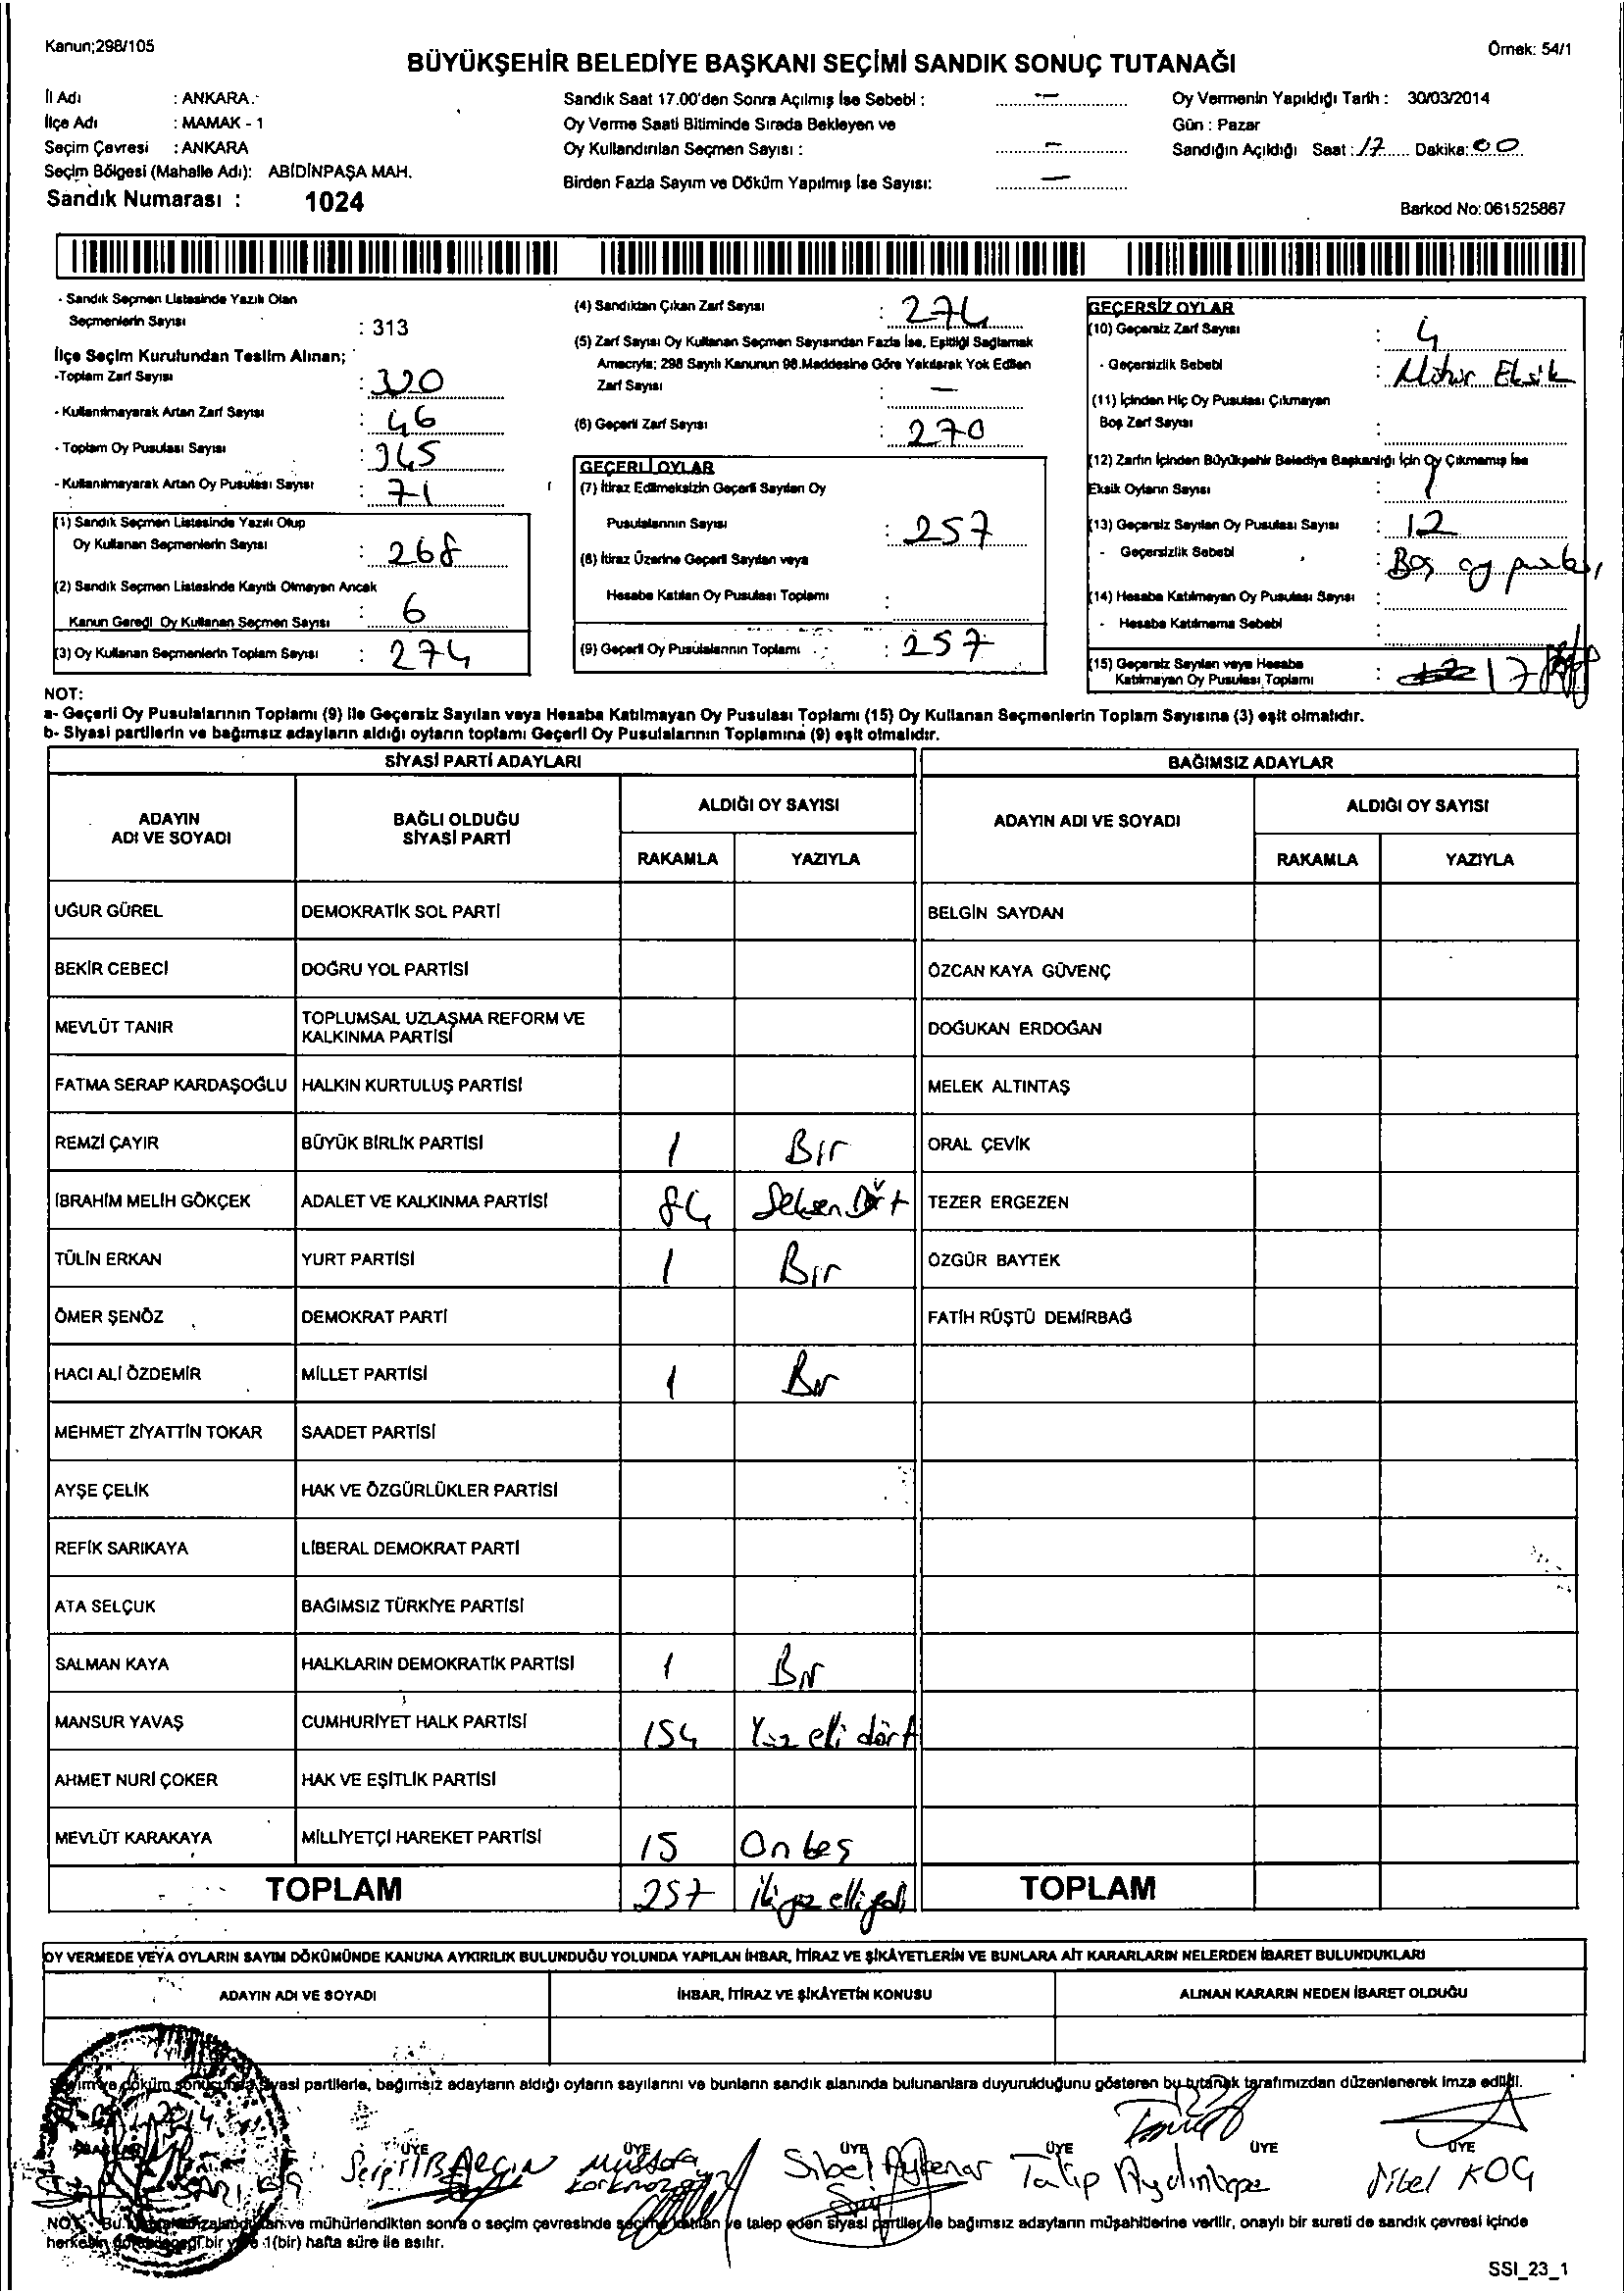 Kanun;298/105
Örnek: 54/1
BÜYÜKŞEHİR BELEDİYE BAŞKANI SEÇİMİ SANDIK SONUÇ TUTANAĞI
İl Adı : ANKARA
İlçe Adı : MAMAK - 1
Seçim Çevresi : ANKARA
Seçim Bölgesi (Mahalle Adı): ABİDİNPAŞA MAH.
Sandık Numarası : 1024
Sandık Saat 17.00'den Sonra Açılmış İse Sebebi : —
Oy Verme Saati Bitiminde Sırada Bekleyen ve
Oy Kullandırılan Seçmen Sayısı : —
Birden Fazla Sayım ve Döküm Yapılmış İse Sayısı: —
Oy Vermenin Yapıldığı Tarih : 30/03/2014
Gün : Pazar
Sandığın Açıldığı Saat : 17 Dakika: 00
Barkod No: 061525867
- Sandık Seçmen Listesinde Yazılı Olan
Seçmenlerin Sayısı : 313
İlçe Seçim Kurulundan Teslim Alınan;
-Toplam Zarf Sayısı : 320
- Kullanılmayarak Artan Zarf Sayısı : 46
- Toplam Oy Pusulası Sayısı : 345
- Kullanılmayarak Artan Oy Pusulası Sayısı : 71
(1) Sandık Seçmen Listesinde Yazılı Olup
Oy Kullanan Seçmenlerin Sayısı : 268
(2) Sandık Seçmen Listesinde Kayıtlı Olmayan Ancak
Kanun Gereği Oy Kullanan Seçmen Sayısı : 6
(3) Oy Kullanan Seçmenlerin Toplam Sayısı : 274
(4) Sandıktan Çıkan Zarf Sayısı : 274
(5) Zarf Sayısı Oy Kullanan Seçmen Sayısından Fazla İse, Eşitliği Sağlamak
Amacıyla; 298 Sayılı Kanunun 98.Maddesine Göre Yakılarak Yok Edilen
Zarf Sayısı : —
(6) Geçerli Zarf Sayısı : 270
GEÇERLİ OYLAR
(7) İtiraz Edilmeksizin Geçerli Sayılan Oy
Pusulalarının Sayısı : 257
(8) İtiraz Üzerine Geçerli Sayılan veya
Hesaba Katılan Oy Pusulası Toplamı :
(9) Geçerli Oy Pusulalarının Toplamı : 257
GEÇERSİZ OYLAR
(10) Geçersiz Zarf Sayısı : 4
- Geçersizlik Sebebi : Mühür Eksik
(11) İçinden Hiç Oy Pusulası Çıkmayan
Boş Zarf Sayısı :
(12) Zarfın İçinden Büyükşehir Belediye Başkanlığı İçin Oy Çıkmamış İse
Eksik Oyların Sayısı : 1
(13) Geçersiz Sayılan Oy Pusulası Sayısı : 12
- Geçersizlik Sebebi : Boş oy
(14) Hesaba Katılmayan Oy Pusulası Sayısı :
- Hesaba Katılmama Sebebi :
(15) Geçersiz Sayılan veya Hesaba
Katılmayan Oy Pusulası Toplamı : 17
NOT:
a- Geçerli Oy Pusulalarının Toplamı (9) ile Geçersiz Sayılan veya Hesaba Katılmayan Oy Pusulası Toplamı (15) Oy Kullanan Seçmenlerin Toplam Sayısına (3) eşit olmalıdır.
b- Siyasi partilerin ve bağımsız adayların aldığı oyların toplamı Geçerli Oy Pusulalarının Toplamına (9) eşit olmalıdır.
SİYASİ PARTİ ADAYLARI
BAĞIMSIZ ADAYLAR
ADAYIN ADI VE SOYADI
BAĞLI OLDUĞU SİYASİ PARTİ
ALDIĞI OY SAYISI
RAKAMLA YAZIYLA
ADAYIN ADI VE SOYADI
ALDIĞI OY SAYISI
RAKAMLA YAZIYLA
UĞUR GÜREL DEMOKRATİK SOL PARTİ BELGİN SAYDAN
BEKİR CEBECİ DOĞRU YOL PARTİSİ ÖZCAN KAYA GÜVENÇ
MEVLÜT TANIR TOPLUMSAL UZLAŞMA REFORM VE KALKINMA PARTİSİ DOĞUKAN ERDOĞAN
FATMA SERAP KARDAŞOĞLU HALKIN KURTULUŞ PARTİSİ MELEK ALTINTAŞ
REMZİ ÇAYIR BÜYÜK BİRLİK PARTİSİ 1 Bir ORAL ÇEVİK
İBRAHİM MELİH GÖKÇEK ADALET VE KALKINMA PARTİSİ 84 Seksen Dört TEZER ERGEZEN
TÜLİN ERKAN YURT PARTİSİ 1 Bir ÖZGÜR BAYTEK
ÖMER ŞENÖZ DEMOKRAT PARTİ FATİH RÜŞTÜ DEMİRBAĞ
HACI ALİ ÖZDEMİR MİLLET PARTİSİ 1 Bir
MEHMET ZİYATTİN TOKAR SAADET PARTİSİ
AYŞE ÇELİK HAK VE ÖZGÜRLÜKLER PARTİSİ
REFİK SARIKAYA LİBERAL DEMOKRAT PARTİ
ATA SELÇUK BAĞIMSIZ TÜRKİYE PARTİSİ
SALMAN KAYA HALKLARIN DEMOKRATİK PARTİSİ 1 Bir
MANSUR YAVAŞ CUMHURİYET HALK PARTİSİ 154 Yüz elli dört
AHMET NURİ ÇOKER HAK VE EŞİTLİK PARTİSİ
MEVLÜT KARAKAYA MİLLİYETÇİ HAREKET PARTİSİ 15 On beş
TOPLAM 257 ikiyüz elliyedi TOPLAM
OY VERMEDE VEYA OYLARIN SAYIM DÖKÜMÜNDE KANUNA AYKIRILIK BULUNDUĞU YOLUNDA YAPILAN İHBAR, İTİRAZ VE ŞİKÂYETLERİN VE BUNLARA AİT KARARLARIN NELERDEN İBARET BULUNDUKLARI
ADAYIN ADI VE SOYADI İHBAR, İTİRAZ VE ŞİKÂYETİN KONUSU ALINAN KARARIN NEDEN İBARET OLDUĞU
siyasi partilerle, bağımsız adayların aldığı oyların sayılarını ve bunların sandık alanında bulunanlara duyurulduğunu gösteren bu tutanak tarafımızdan düzenlenerek imza edildi.
ÜYE ÜYE ÜYE ÜYE ÜYE ÜYE
Mustafa Sibel Talip Sibel KOÇ
ve mühürlendikten sonra o seçim çevresinde ve talep eden siyasi partiler ile bağımsız adayların müşahitlerine verilir, onaylı bir sureti de sandık çevresi içinde
bir 1(bir) hafta süre ile asılır.
SSI_23_1